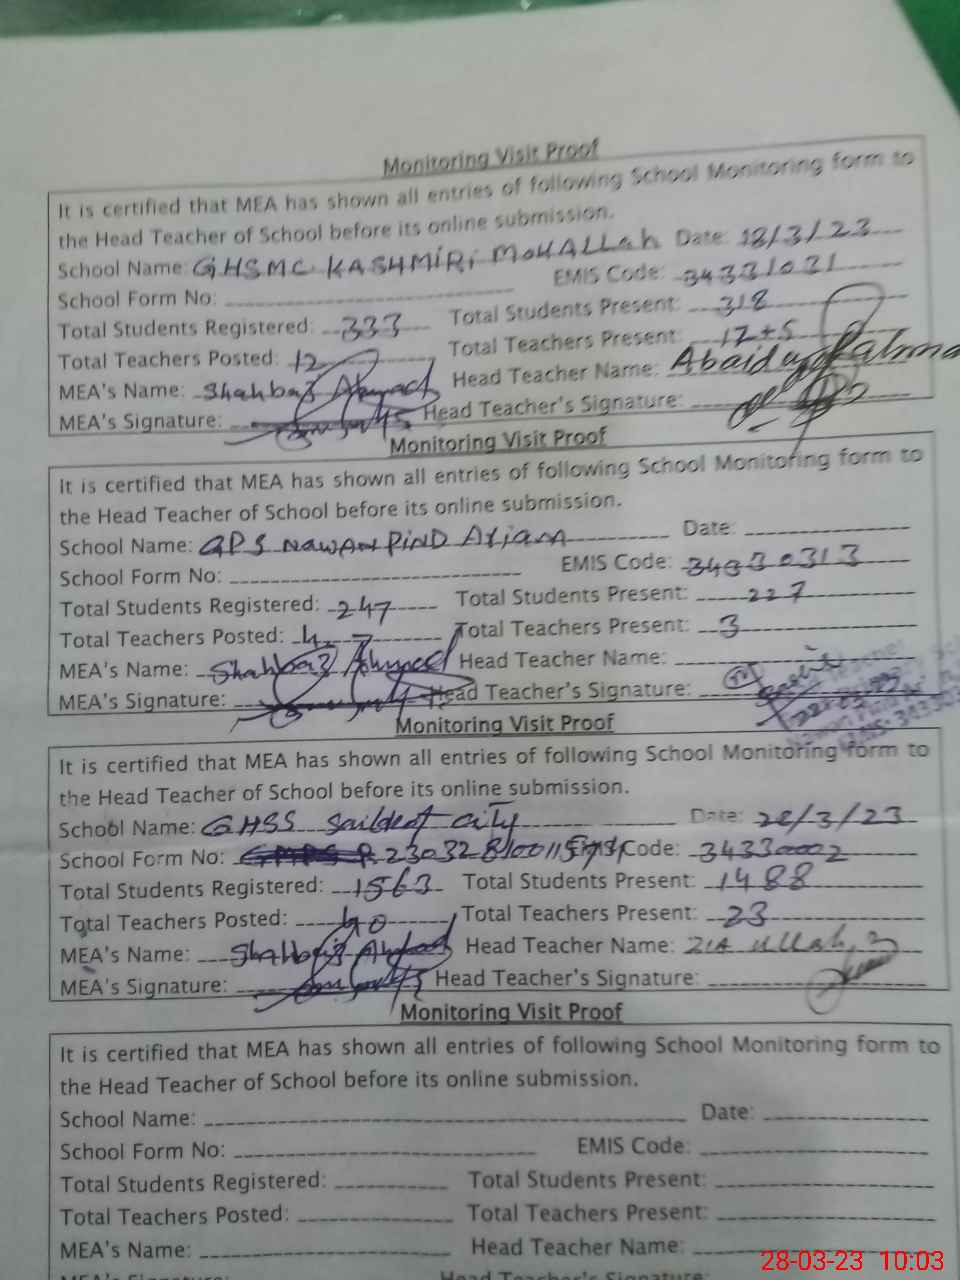 Monitoring Visit Proof
It is certified that MEA has shown all entries of following School Monitoring form to
the Head Teacher of School before its online submission.
School Name: GHSMC KASHMIRI MOHALLah Date: /3/23
School Form No: EMIS Code: 34331031
Total Students Registered: 333 Total Students Present: 318
Total Teachers Posted: 12 Total Teachers Present: 12+5
MEA's Name: Shahbaz Ahmad Head Teacher Name:
MEA's Signature: Head Teacher's Signature:
Monitoring Visit Proof
It is certified that MEA has shown all entries of following School Monitoring form to
the Head Teacher of School before its online submission.
School Name: GPS NAWAN PIND Date:
School Form No: EMIS Code: 34330313
Total Students Registered: 247 Total Students Present: 227
Total Teachers Posted: 4 Total Teachers Present: 3
MEA's Name: Shahbaz Ahmad Head Teacher Name:
MEA's Signature: Head Teacher's Signature:
Monitoring Visit Proof
It is certified that MEA has shown all entries of following School Monitoring form to
the Head Teacher of School before its online submission.
School Name: GHSS city Date: 28/3/23
School Form No: Code: 34330002
Total Students Registered: 1563 Total Students Present: 1488
Total Teachers Posted: 40 Total Teachers Present: 23
MEA's Name: Shahbaz Ahmad Head Teacher Name: ZIA Ullah
MEA's Signature: Head Teacher's Signature:
Monitoring Visit Proof
It is certified that MEA has shown all entries of following School Monitoring form to
the Head Teacher of School before its online submission.
School Name: Date:
School Form No: EMIS Code:
Total Students Registered: Total Students Present:
Total Teachers Posted: Total Teachers Present:
MEA's Name: Head Teacher Name:
MEA's Signature: Head Teacher's Signature:
28-03-23 10:03